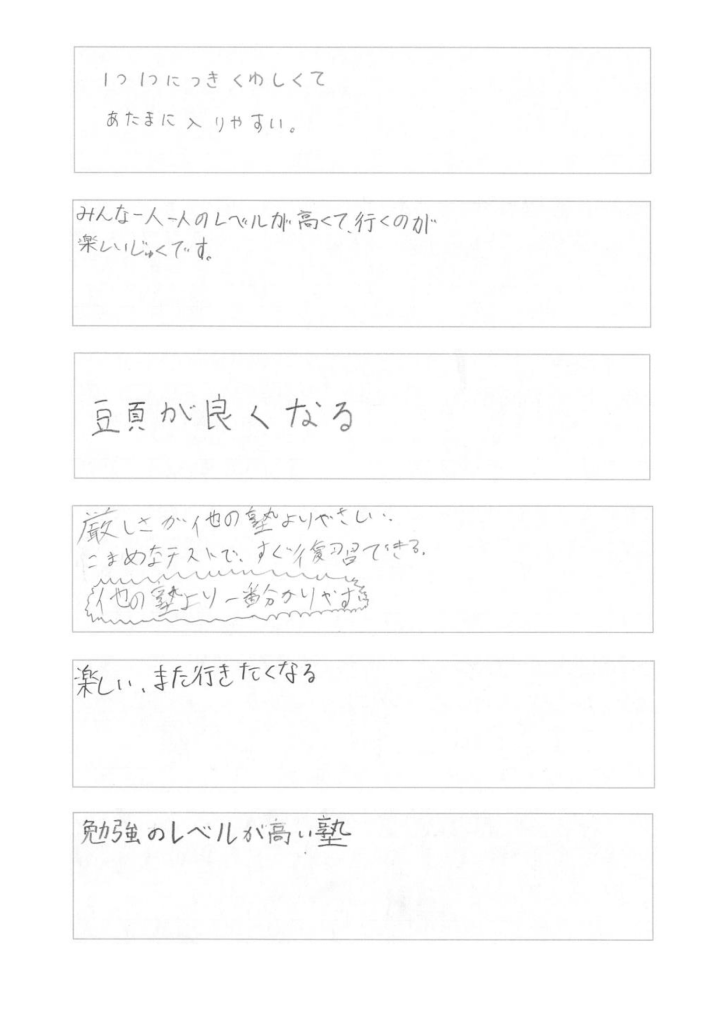 1つ1つにつきくわしくて
あたまに入りやすい。
みんな一人一人のレベルが高くて、行くのが
楽しいじゅくです。
頭が良くなる
厳しさが他の塾よりやさしい。
こまめなテストで、すぐ復習できる。
他の塾より一番分かりやすい
楽しい、また行きたくなる
勉強のレベルが高い塾